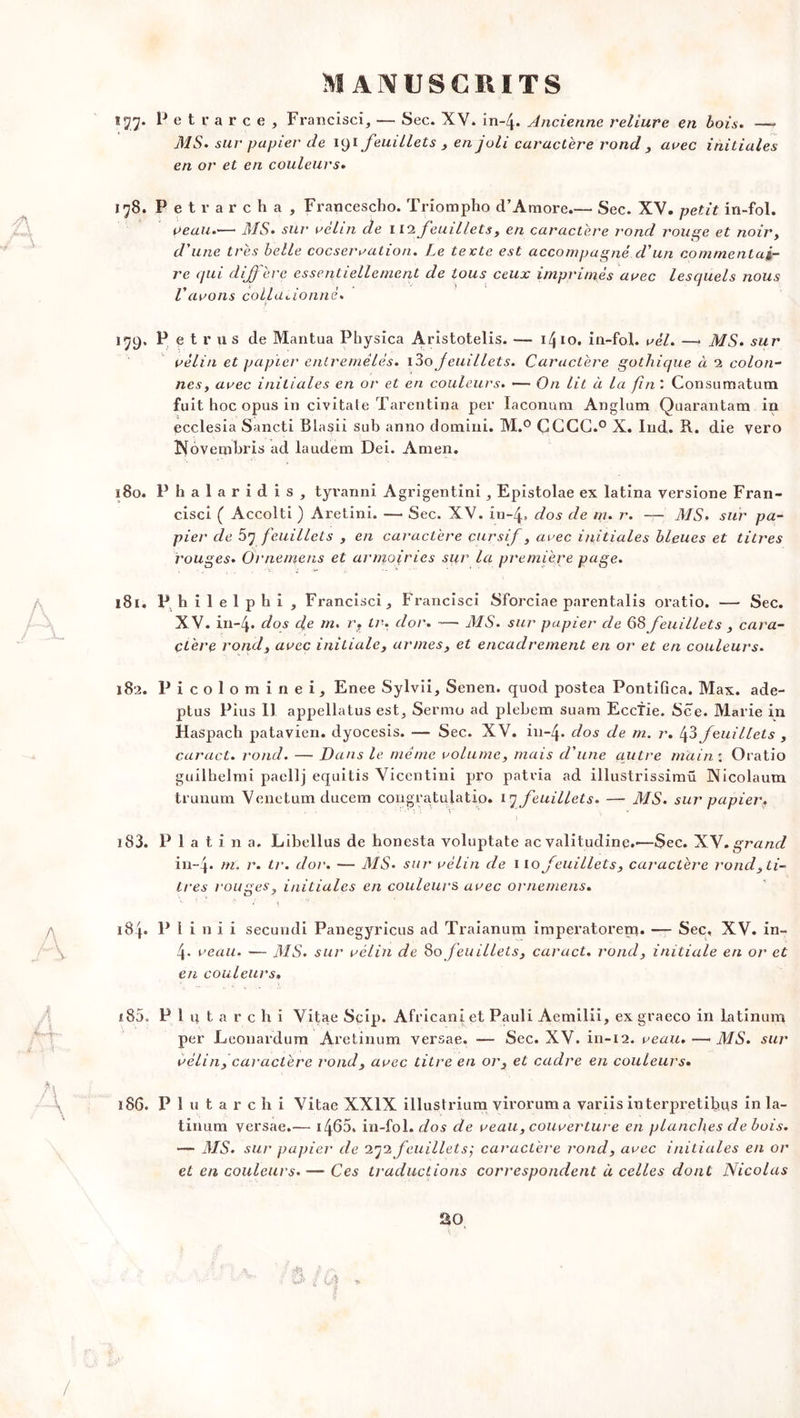 MANUSCRITS
177. Petrarce, Francisci, — Sec. XV. in-4. Ancienne reliure en bois. —
MS. sur papier de 191 feuillets, en joli caractère rond, avec initiales
en or et en couleurs.
178. Petrarcha, Francescho. Triompho d'Amore.— Sec. XV. petit in-fol.
veau.— MS. sur vélin de 112 feuillets, en caractère rond rouge et noir,
d'une très belle cocservation. Le texte est accompagné d'un commentai-
re qui diffère essentiellement de tous ceux imprimés avec lesquels nous
l'avons collationné.
179. Petrus de Mantua Physica Aristotelis. — 1410. in-fol. vél. — MS. sur
vélin et papier entremêlés. 130 feuillets. Caractère gothique à 2 colon-
nes, avec initiales en or et en couleurs. — On lit à la fin: Consumatum
fuit hoc opus in civitate Tarentina per Iaconum Anglum Quarantam in
ecclesia Sancti Blasii sub anno domini. M.º CCCC.º X. Ind. R. die vero
Novembris ad laudem Dei. Amen.
180. Phalaridis, tyranni Agrigentini, Epistolae ex latina versione Fran-
cisci ( Accolti ) Aretini. — Sec. XV. in-4. dos de m. r. — MS. sur pa-
pier de 57 feuillets, en caractère cursif, avec initiales bleues et titres
rouges. Ornemens et armoiries sur la première page.
181. Philelphi, Francisci, Francisci Sforciae parentalis oratio. — Sec.
XV. in-4. dos de m. r. tr. dor. — MS. sur papier de 68 feuillets, cara-
ctère rond, avec initiale, armes, et encadrement en or et en couleurs.
182. Picolominei, Enee Sylvii, Senen. quod postea Pontifica. Max. ade-
ptus Pius II appellatus est, Sermo ad plebem suam Eccľie. Sče. Marie in
Haspach patavien. dyocesis. — Sec. XV. in-4. dos de m. r. 43 feuillets,
caract. rond. — Dans le même volume, mais d'une autre main: Oratio
guilhelmi paellj equitis Vicentini pro patria ad illustrissimū Nicolaum
trunum Venetum ducem congratulatio. 17 feuillets. — MS. sur papier.
183. Platina. Libellus de honesta voluptate ac valitudine.—Sec. XV. grand
in-4. m. r. tr. dor. — MS. sur vélin de 110 feuillets, caractère rond, ti-
tres rouges, initiales en couleurs avec ornemens.
184. Plinii secundi Panegyricus ad Traianum imperatorem. — Sec. XV. in-
4. veau. — MS. sur vélin de 80 feuillets, caract. rond, initiale en or et
en couleurs.
185. Plutarchi Vitae Scip. Africani et Pauli Aemilii, ex graeco in latinum
per Leonardum Aretinum versae. — Sec. XV. in-12. veau. — MS. sur
vélin, caractère rond, avec titre en or, et cadre en couleurs.
186. Plutarchi Vitae XXIX illustrium virorum a variis interpretibus in la-
tinum versae.— 1465. in-fol. dos de veau, couverture en planches de bois.
— MS. sur papier de 272 feuillets; caractère rond, avec initiales en or
et en couleurs. — Ces traductions correspondent à celles dont Nicolas
20